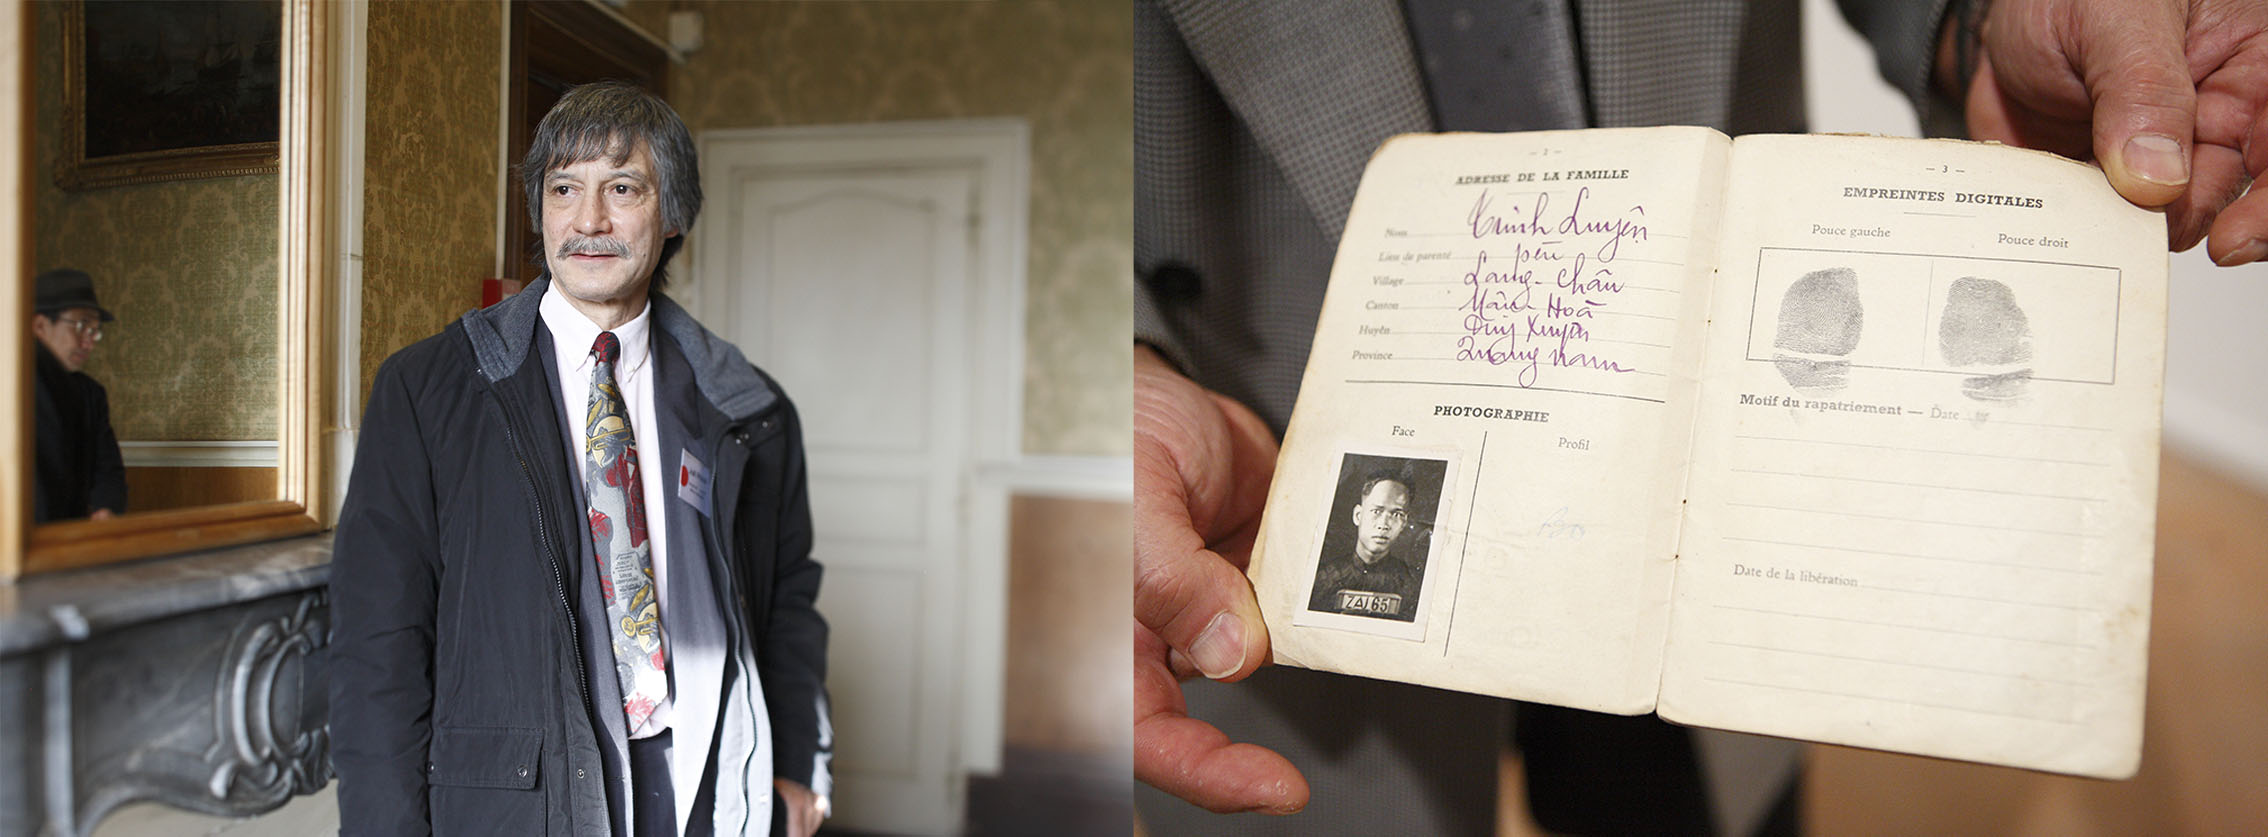 — 2 —
ADRESSE DE LA FAMILLE
Nom Trinh Luyện
Lien de parenté père
Village Lang-Châu
Canton Mâu-Hoà
Huyện Duy Xuyên
Province Quang nam
PHOTOGRAPHIE
Face
Profil
ZAI65
— 3 —
EMPREINTES DIGITALES
Pouce gauche
Pouce droit
Motif du rapatriement — Date
Date de la libération